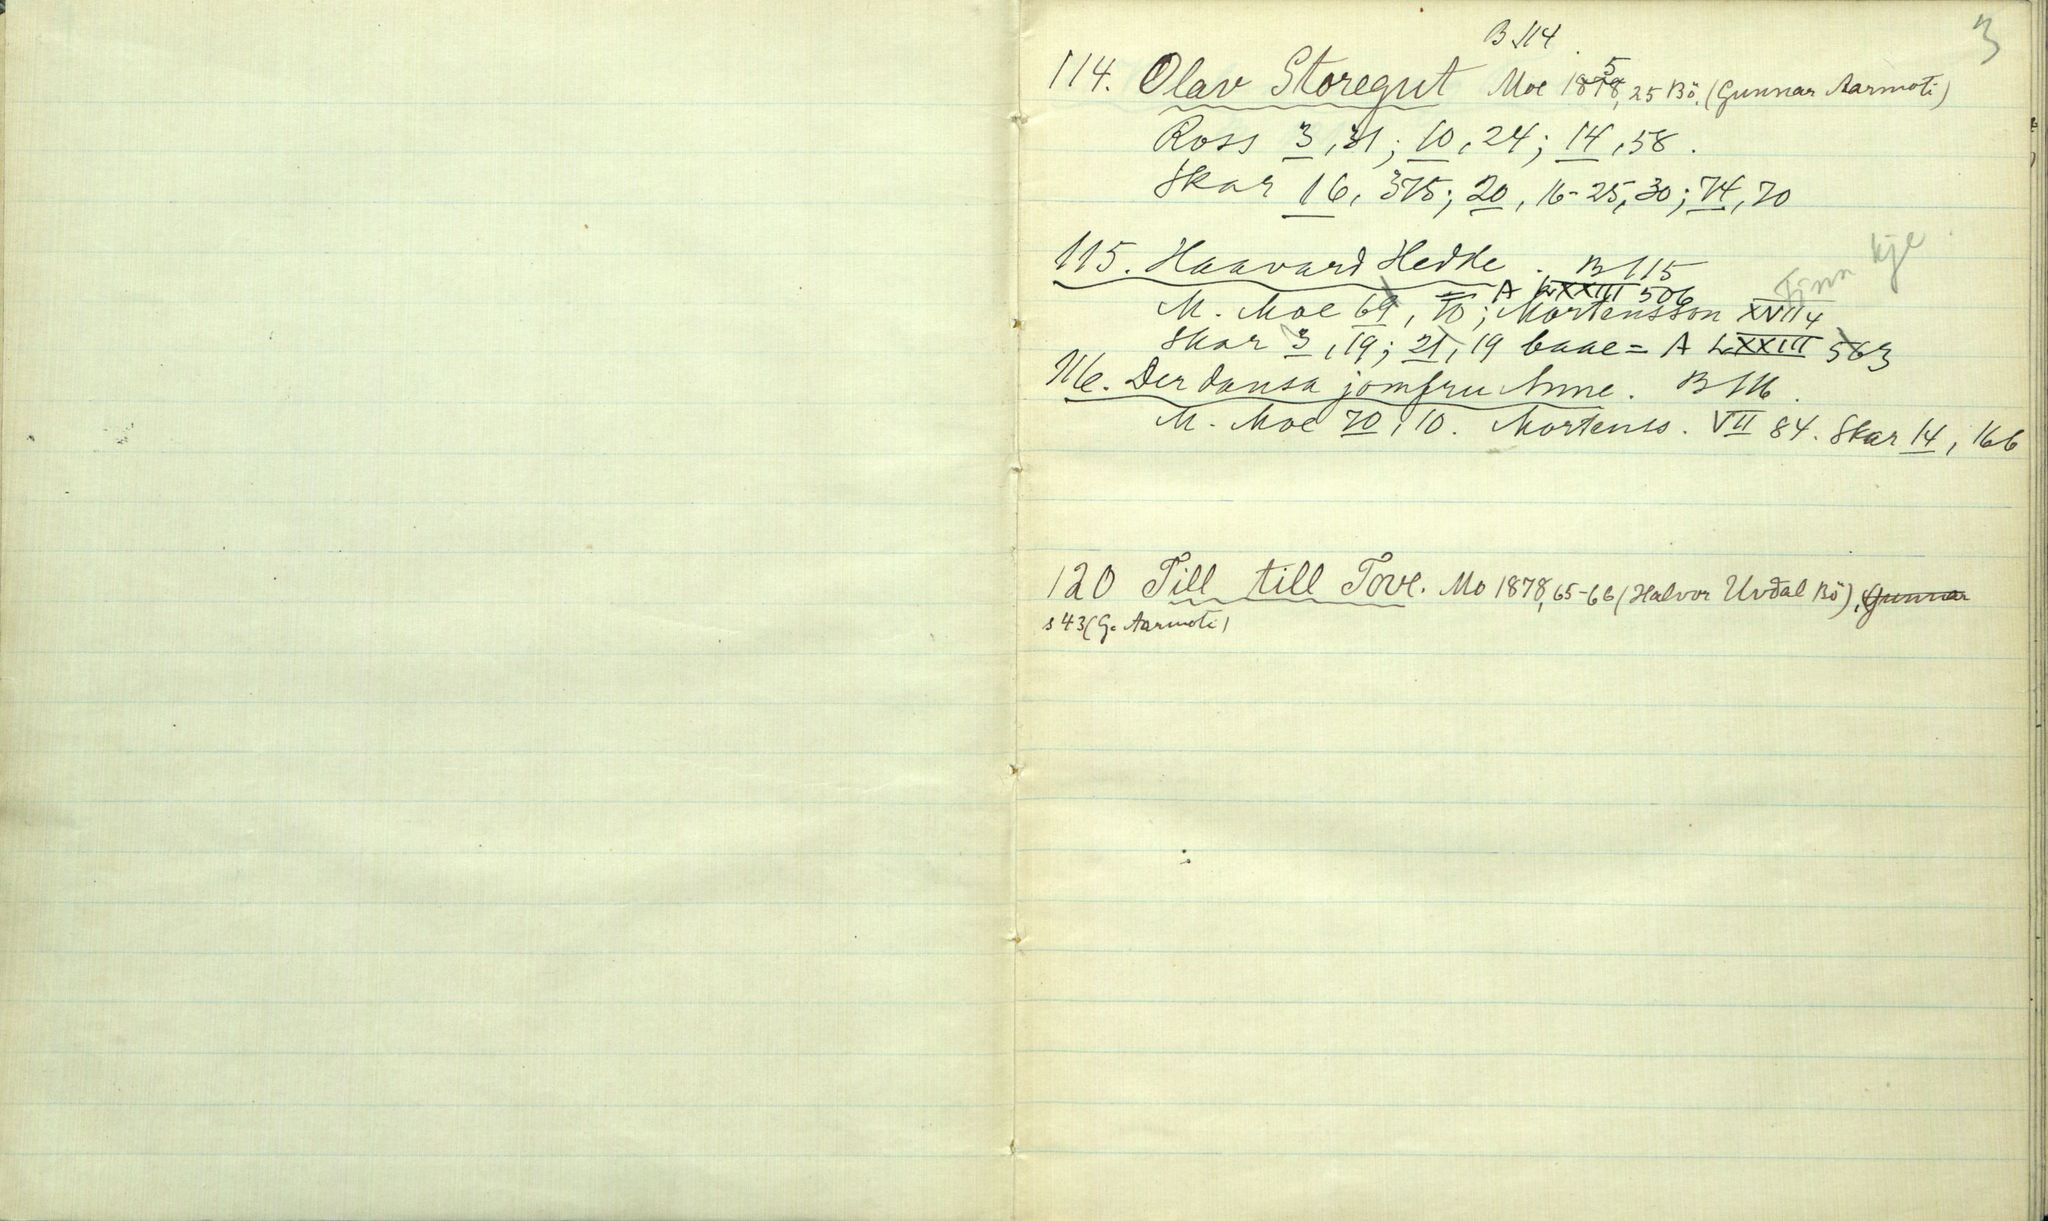 3
B 114
114. Olav Storegut Moe 1878, 25 Bö. (Gunnar Aarmoti)
5
Ross 3, 31; 10, 24; 14, 58.
Skar 16, 375; 20, 16-25, 30; 74, 70
115. Haavard Hedde. B 115
kje
A LXXIII 506
M. Moe 69, 70; Mortensson XVII 4
Skar 3, 19; 21, 19 baae = A LXXIII 563
116. Der dansa jomfru Anne. B 116.
M. Moe 70, 10. Mortenss. VII 84. Skar 14, 166
120 Till till Tove. Mo 1878, 65-66 (Halvor Uvdal Bö), Gunnar
s 43 (G. Aarmoti)